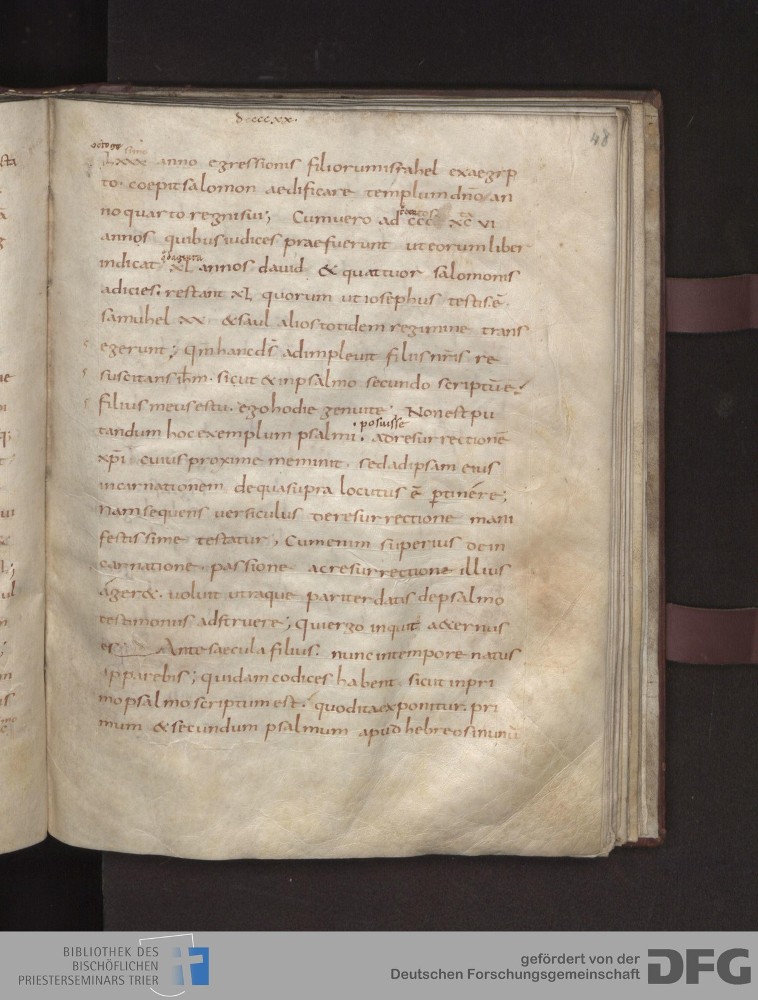 dcccxx.
48
octoge simo
LXXX anno egressionis filiorum israhel exaegyp
to. coepit salomon aedificare templum dn̄o an
no quarto regni sui; Cum uero ad ccc xc vi
annos quibus iudices praefuerunt ut eorum liber
indicat xl annos dauid & quattuor salomonis
adicies. restant xl quorum ut iosephus testis ē.
samuhel xx & saul alios totidem regimine trans
egerunt; Qm̄ hanc d̄s adimpleuit filiis nr̄is re
suscitans ih̄m. sicut & in psalmo secundo scriptū ē.
filius meus es tu. ego hodie genui te; Non est pu
tandum hoc exemplum psalmi. posuisse ad resurrectionē
xp̄i cuius proxime meminit. sed ad ipsam eius
incarnationem de qua supra locutus ē ꝑtinere;
Nam sequens uersiculus de resurrectione mani
festissime testatur; Cum enim superius de in
carnatione. passione ac resurrectione illius
ageret. uoluit utraque pariter datis de psalmo
testimoniis adstruere; qui ergo inquit aeternus
es Ante saecula filius. nunc in tempore natus
apparebis; quidam codices habent. sicut in pri
mo psalmo scriptum est. quod ita exponitur. pri
mum & secundum psalmum apud hebreos in unū
BIBLIOTHEK DES
BISCHÖFLICHEN
PRIESTERSEMINARS TRIER
gefördert von der
Deutschen Forschungsgemeinschaft
DFG